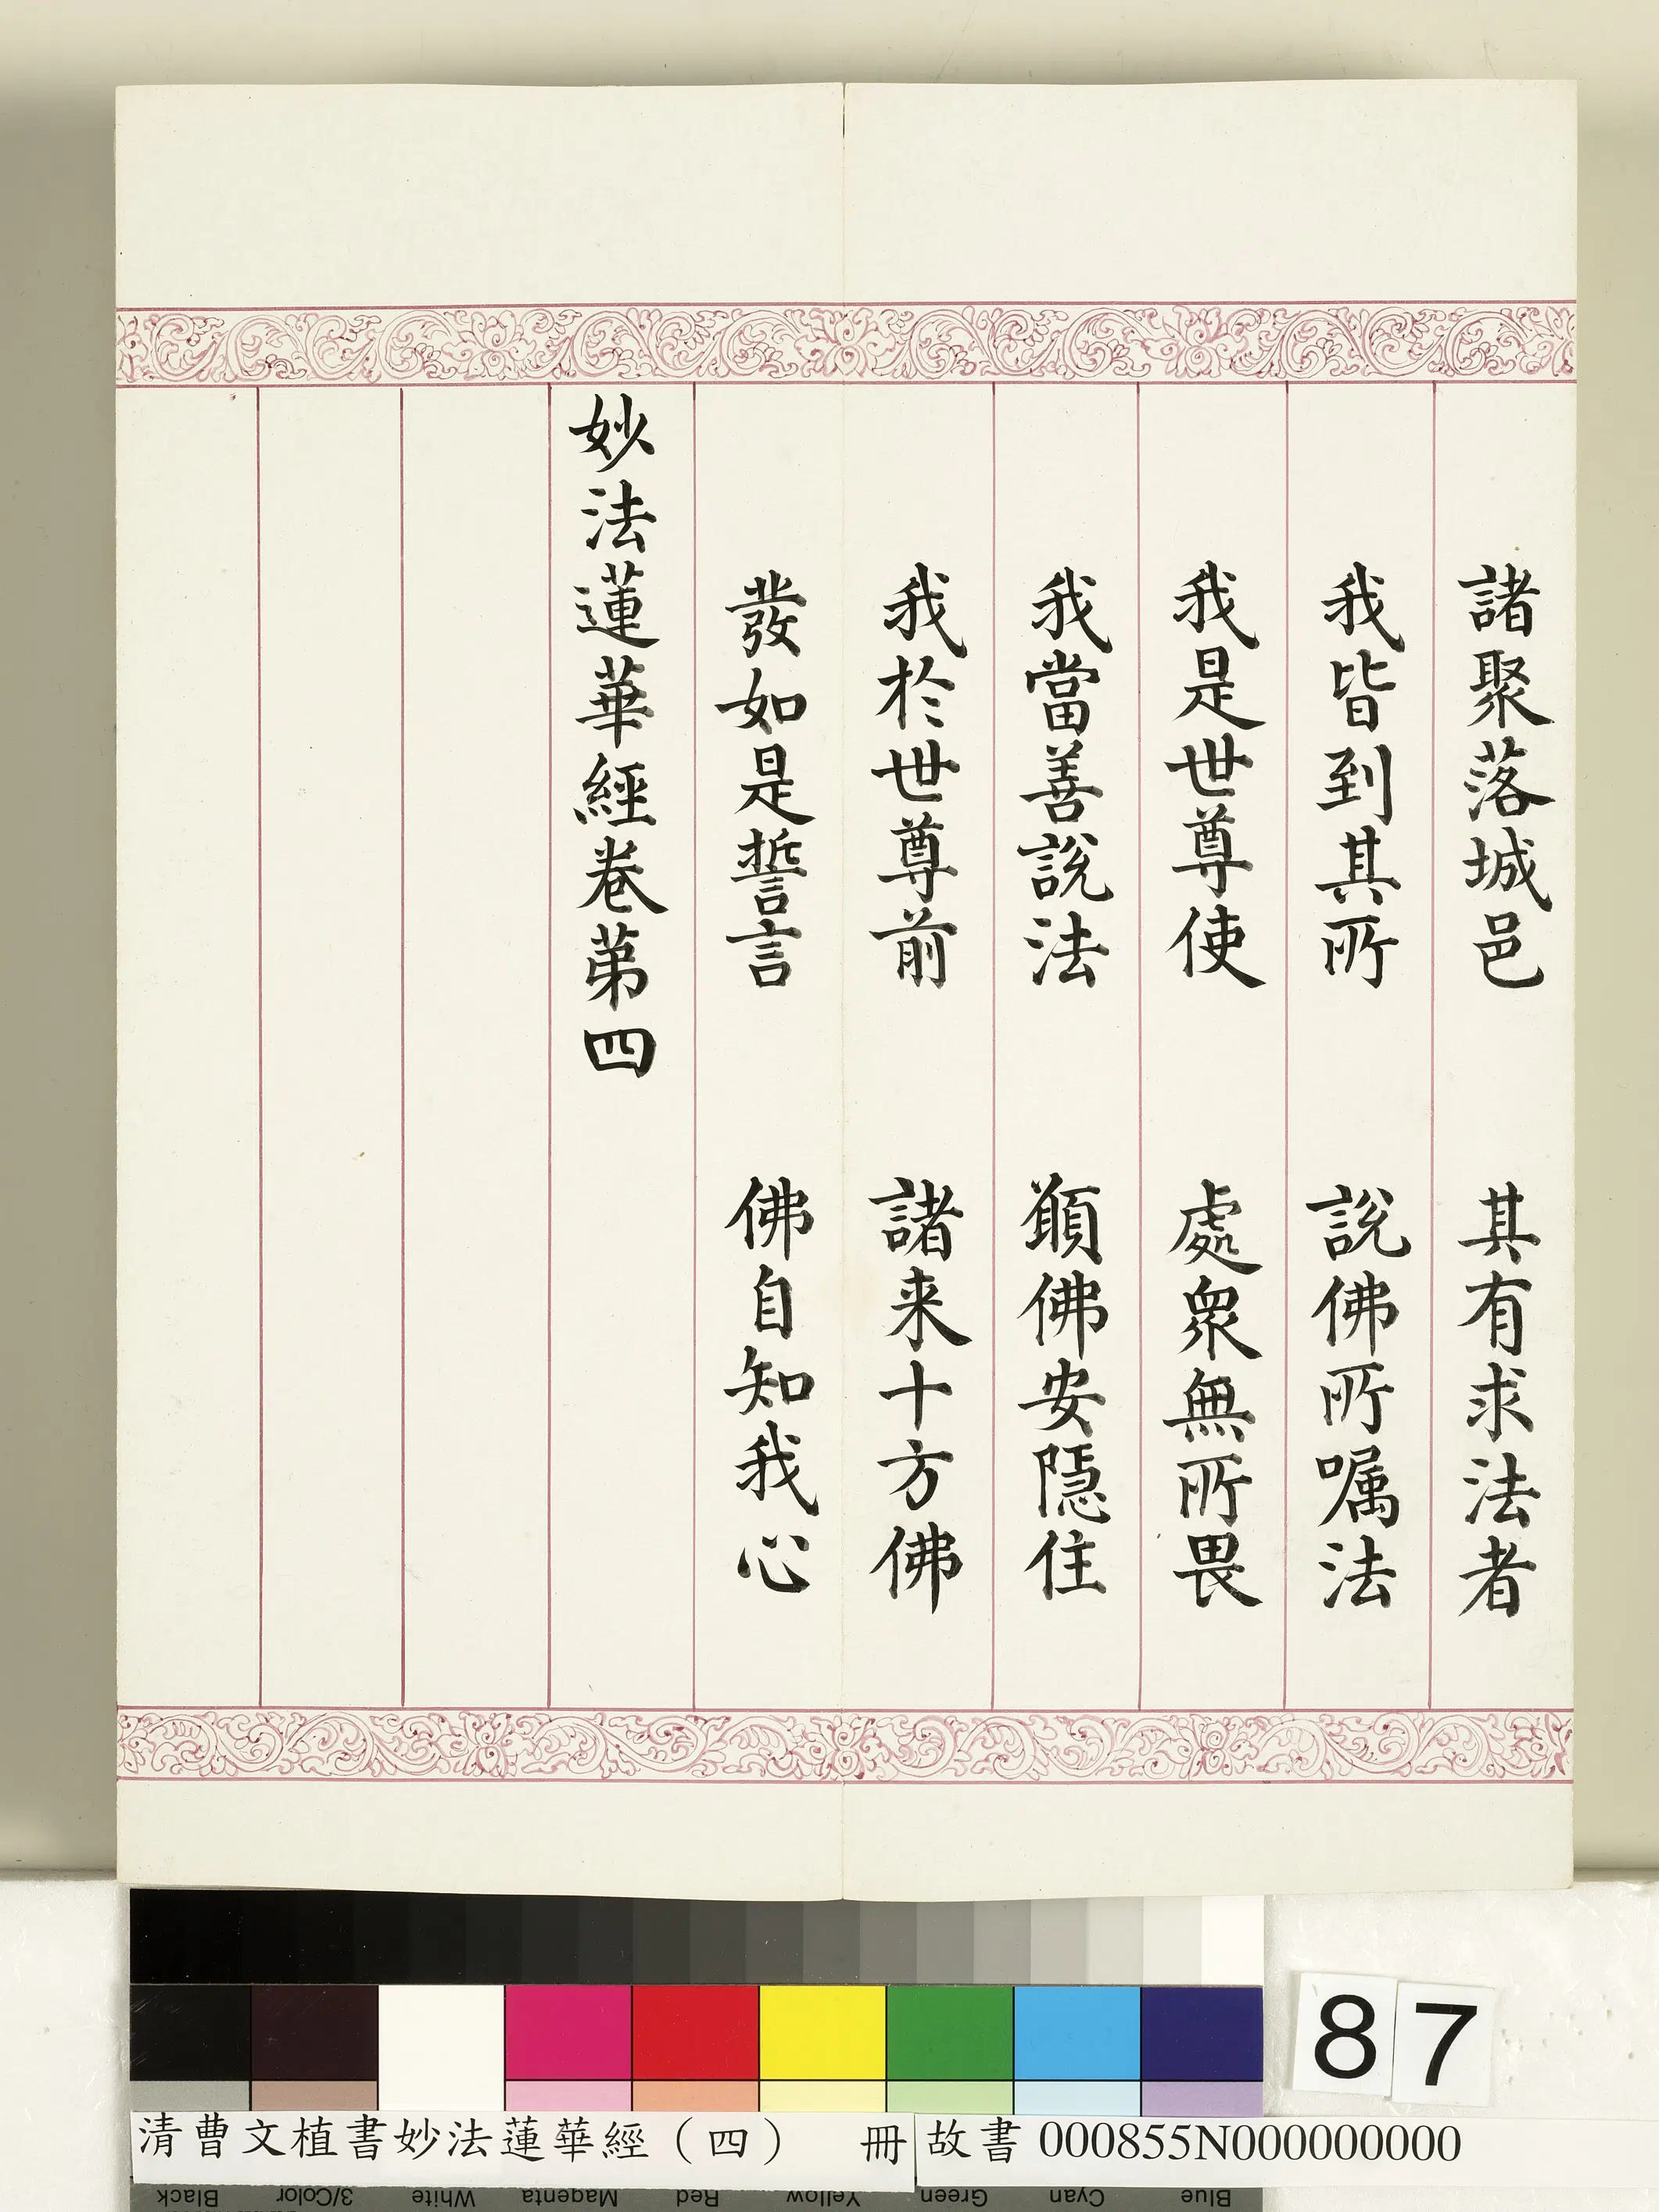 諸聚落城邑 其有求法者
我皆到其所 說佛所囑法
我是世尊使 處衆無所畏
我當善說法 願佛安隱住
我於世尊前 諸来十方佛
發如是誓言 佛自知我心
妙法蓮華經卷第四
87
清曹文植書妙法蓮華經（四） 冊
故書 000855N000000000
Black 3/Color White Magenta Red Yellow Green Cyan Blue